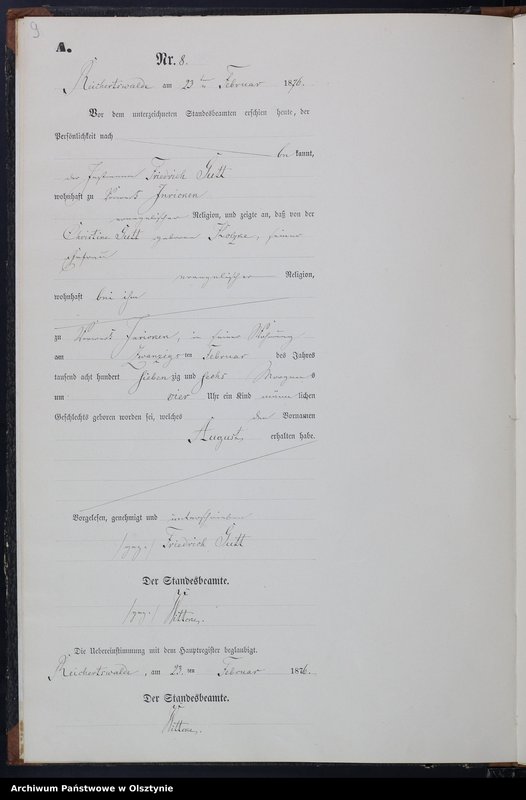 9
A.
Nr. 8.
Reichertswalde am 23ten Februar 1876.
Vor dem unterzeichneten Standesbeamten erschien heute, der
Persönlichkeit nach
be kannt,
der Instmann Friedrich Gutt
wohnhaft zu Vorwerk
evangelischer Religion, und zeigte an, daß von der
Christine Gutt geborene seiner
Ehefrau
evangelischer Religion,
wohnhaft bei ihm
zu Vorwerk in seiner Wohnung
am zwanzigs ten Februar des Jahres
tausend acht hundert sieben zig und sechs Morgens
um vier Uhr ein Kind männ lichen
Geschlechts geboren worden sei, welches den Vornamen
August, erhalten habe.
Vorgelesen, genehmigt und unterschrieben
/gez./ Friedrich Gutt
Der Standesbeamte.
/gez./
Die Uebereinstimmung mit dem Hauptregister beglaubigt.
Reichertswalde, am 23. ten Februar 1876.
Der Standesbeamte.
Archiwum Państwowe w Olsztynie